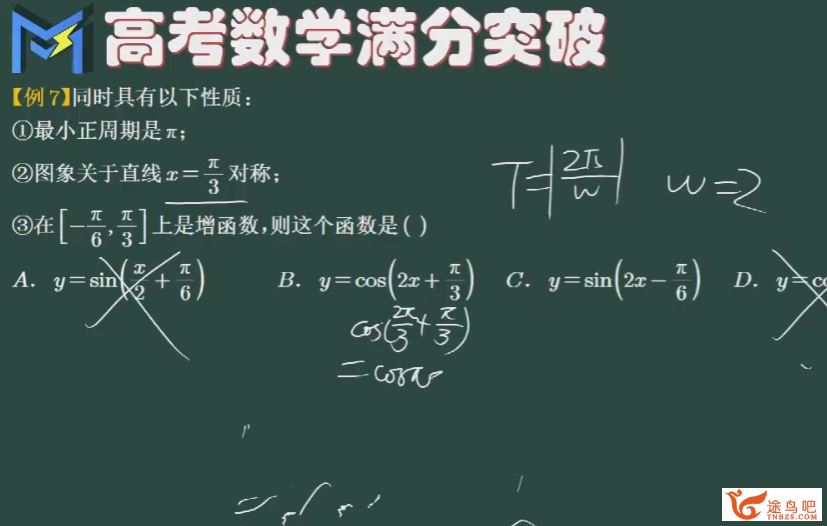 高考数学满分突破
【例7】同时具有以下性质：
①最小正周期是π；
②图象关于直线x=π/3对称；
T=|2π/w| w=2
③在[-π/6,π/3]上是增函数,则这个函数是( )
A. y=sin(x/2+π/6) B. y=cos(2x+π/3) C. y=sin(2x-π/6) D. y=co
cos(2π/3+π/3)
=cosπ
=
途鸟吧
TNBZS.COM